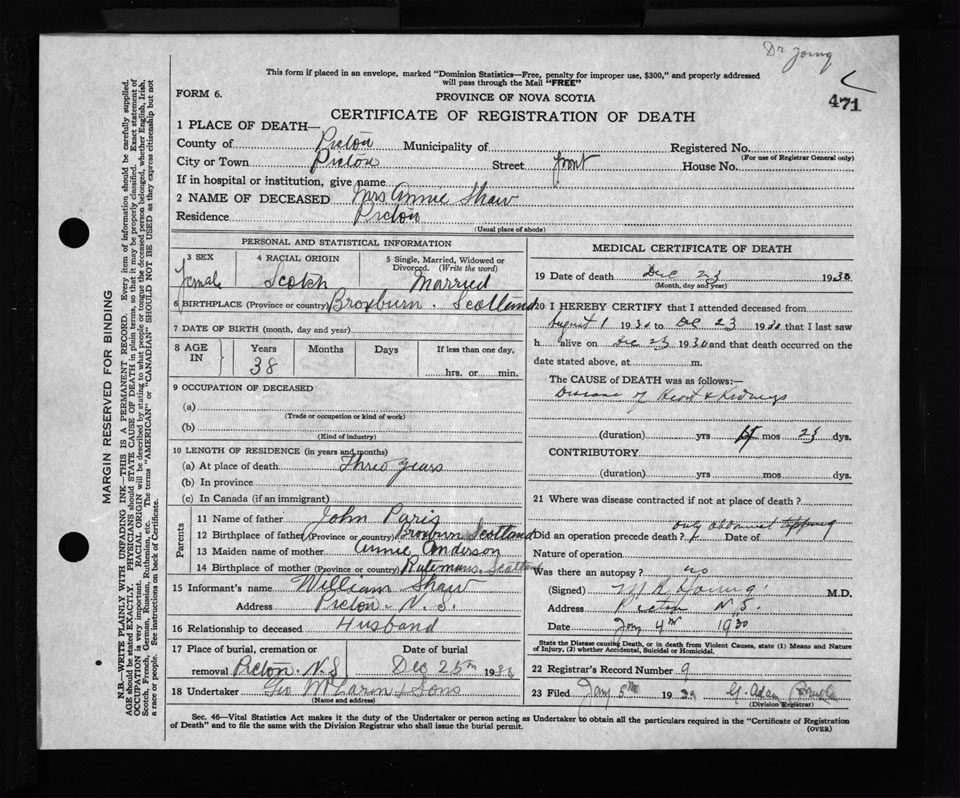 Dr Young
This form if placed in an envelope, marked "Dominion Statistics—Free, penalty for improper use, $300," and properly addressed
will pass through the Mail "FREE"
471
FORM 6.
PROVINCE OF NOVA SCOTIA
CERTIFICATE OF REGISTRATION OF DEATH
1 PLACE OF DEATH—
County of Pictou Municipality of Registered No.
(For use of Registrar General only)
City or Town Pictou Street Front House No.
If in hospital or institution, give name
2 NAME OF DECEASED Mrs Annie Shaw
Residence Pictou
(Usual place of abode)
PERSONAL AND STATISTICAL INFORMATION
3 SEX 4 RACIAL ORIGIN 5 Single, Married, Widowed or
Divorced. (Write the word)
Female Scotch Married
6 BIRTHPLACE (Province or country) Broxburn. Scotland
7 DATE OF BIRTH (month, day and year)
8 AGE IN Years Months Days If less than one day,
38 hrs. or min.
9 OCCUPATION OF DECEASED
(a)
(Trade or occupation or kind of work)
(b)
(Kind of industry)
10 LENGTH OF RESIDENCE (in years and months)
(a) At place of death Three years
(b) In province
(c) In Canada (if an immigrant)
Parents
11 Name of father John Paris
12 Birthplace of father (Province or country) Broxburn Scotland
13 Maiden name of mother Annie Anderson
14 Birthplace of mother (Province or country) Scotland
15 Informant's name William Shaw
Address Pictou. N. S.
16 Relationship to deceased Husband
17 Place of burial, cremation or Date of burial
removal Pictou. N.S Dec 25th 193
18 Undertaker Geo McLaren & Sons
(Name and address)
MEDICAL CERTIFICATE OF DEATH
19 Date of death Dec 23 1930
(Month, day and year)
20 I HEREBY CERTIFY that I attended deceased from
August 1 1930 to Dec 23 1930 that I last saw
h alive on Dec 23 1930 and that death occurred on the
date stated above, at m.
The CAUSE of DEATH was as follows:—
Disease of Heart & Kidneys
(duration) yrs mos 23 dys.
CONTRIBUTORY
(duration) yrs mos dys.
21 Where was disease contracted if not at place of death ?
only abdominal tapping
Did an operation precede death ? Date of
Nature of operation
Was there an autopsy ? no
(Signed) Young M.D.
Address Pictou N.S.
Date Jany 4th 1930
State the Disease causing Death, or in death from Violent Causes, state (1) Means and Nature
of Injury, (2) whether Accidental, Suicidal or Homicidal.
22 Registrar's Record Number 9
23 Filed Jany 5th 193 G. Adam
(Division Registrar)
Sec. 46—Vital Statistics Act makes it the duty of the Undertaker or person acting as Undertaker to obtain all the particulars required in the "Certificate of Registration
of Death" and to file the same with the Division Registrar who shall issue the burial permit. (OVER)
MARGIN RESERVED FOR BINDING
N.B.—WRITE PLAINLY WITH UNFADING INK—THIS IS A PERMANENT RECORD. Every item of information should be carefully supplied.
AGE should be stated EXACTLY. PHYSICIANS should STATE CAUSE OF DEATH in plain terms, so that it may be properly classified. Exact statement of
OCCUPATION is very important. RACIAL ORIGIN will be described by stating to what people or tongue the deceased person belonged, whether English, Irish,
Scotch, French, German, Russian, Ruthenian, etc. The terms "AMERICAN" or "CANADIAN" SHOULD NOT BE USED as they express citizenship but not
a race or people. See instructions on back of Certificate.